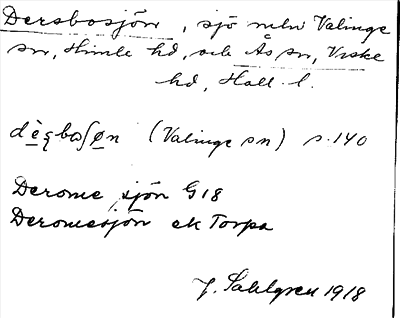 Dersbosjön, sjö mln Valinge
sn, Himle hd, och Ås sn, Viske
hd, Hall. l.
(Valinge sn) s. 140
Derome sjön G18
Deromesjön ek Torpa
J. Sahlgren 1918